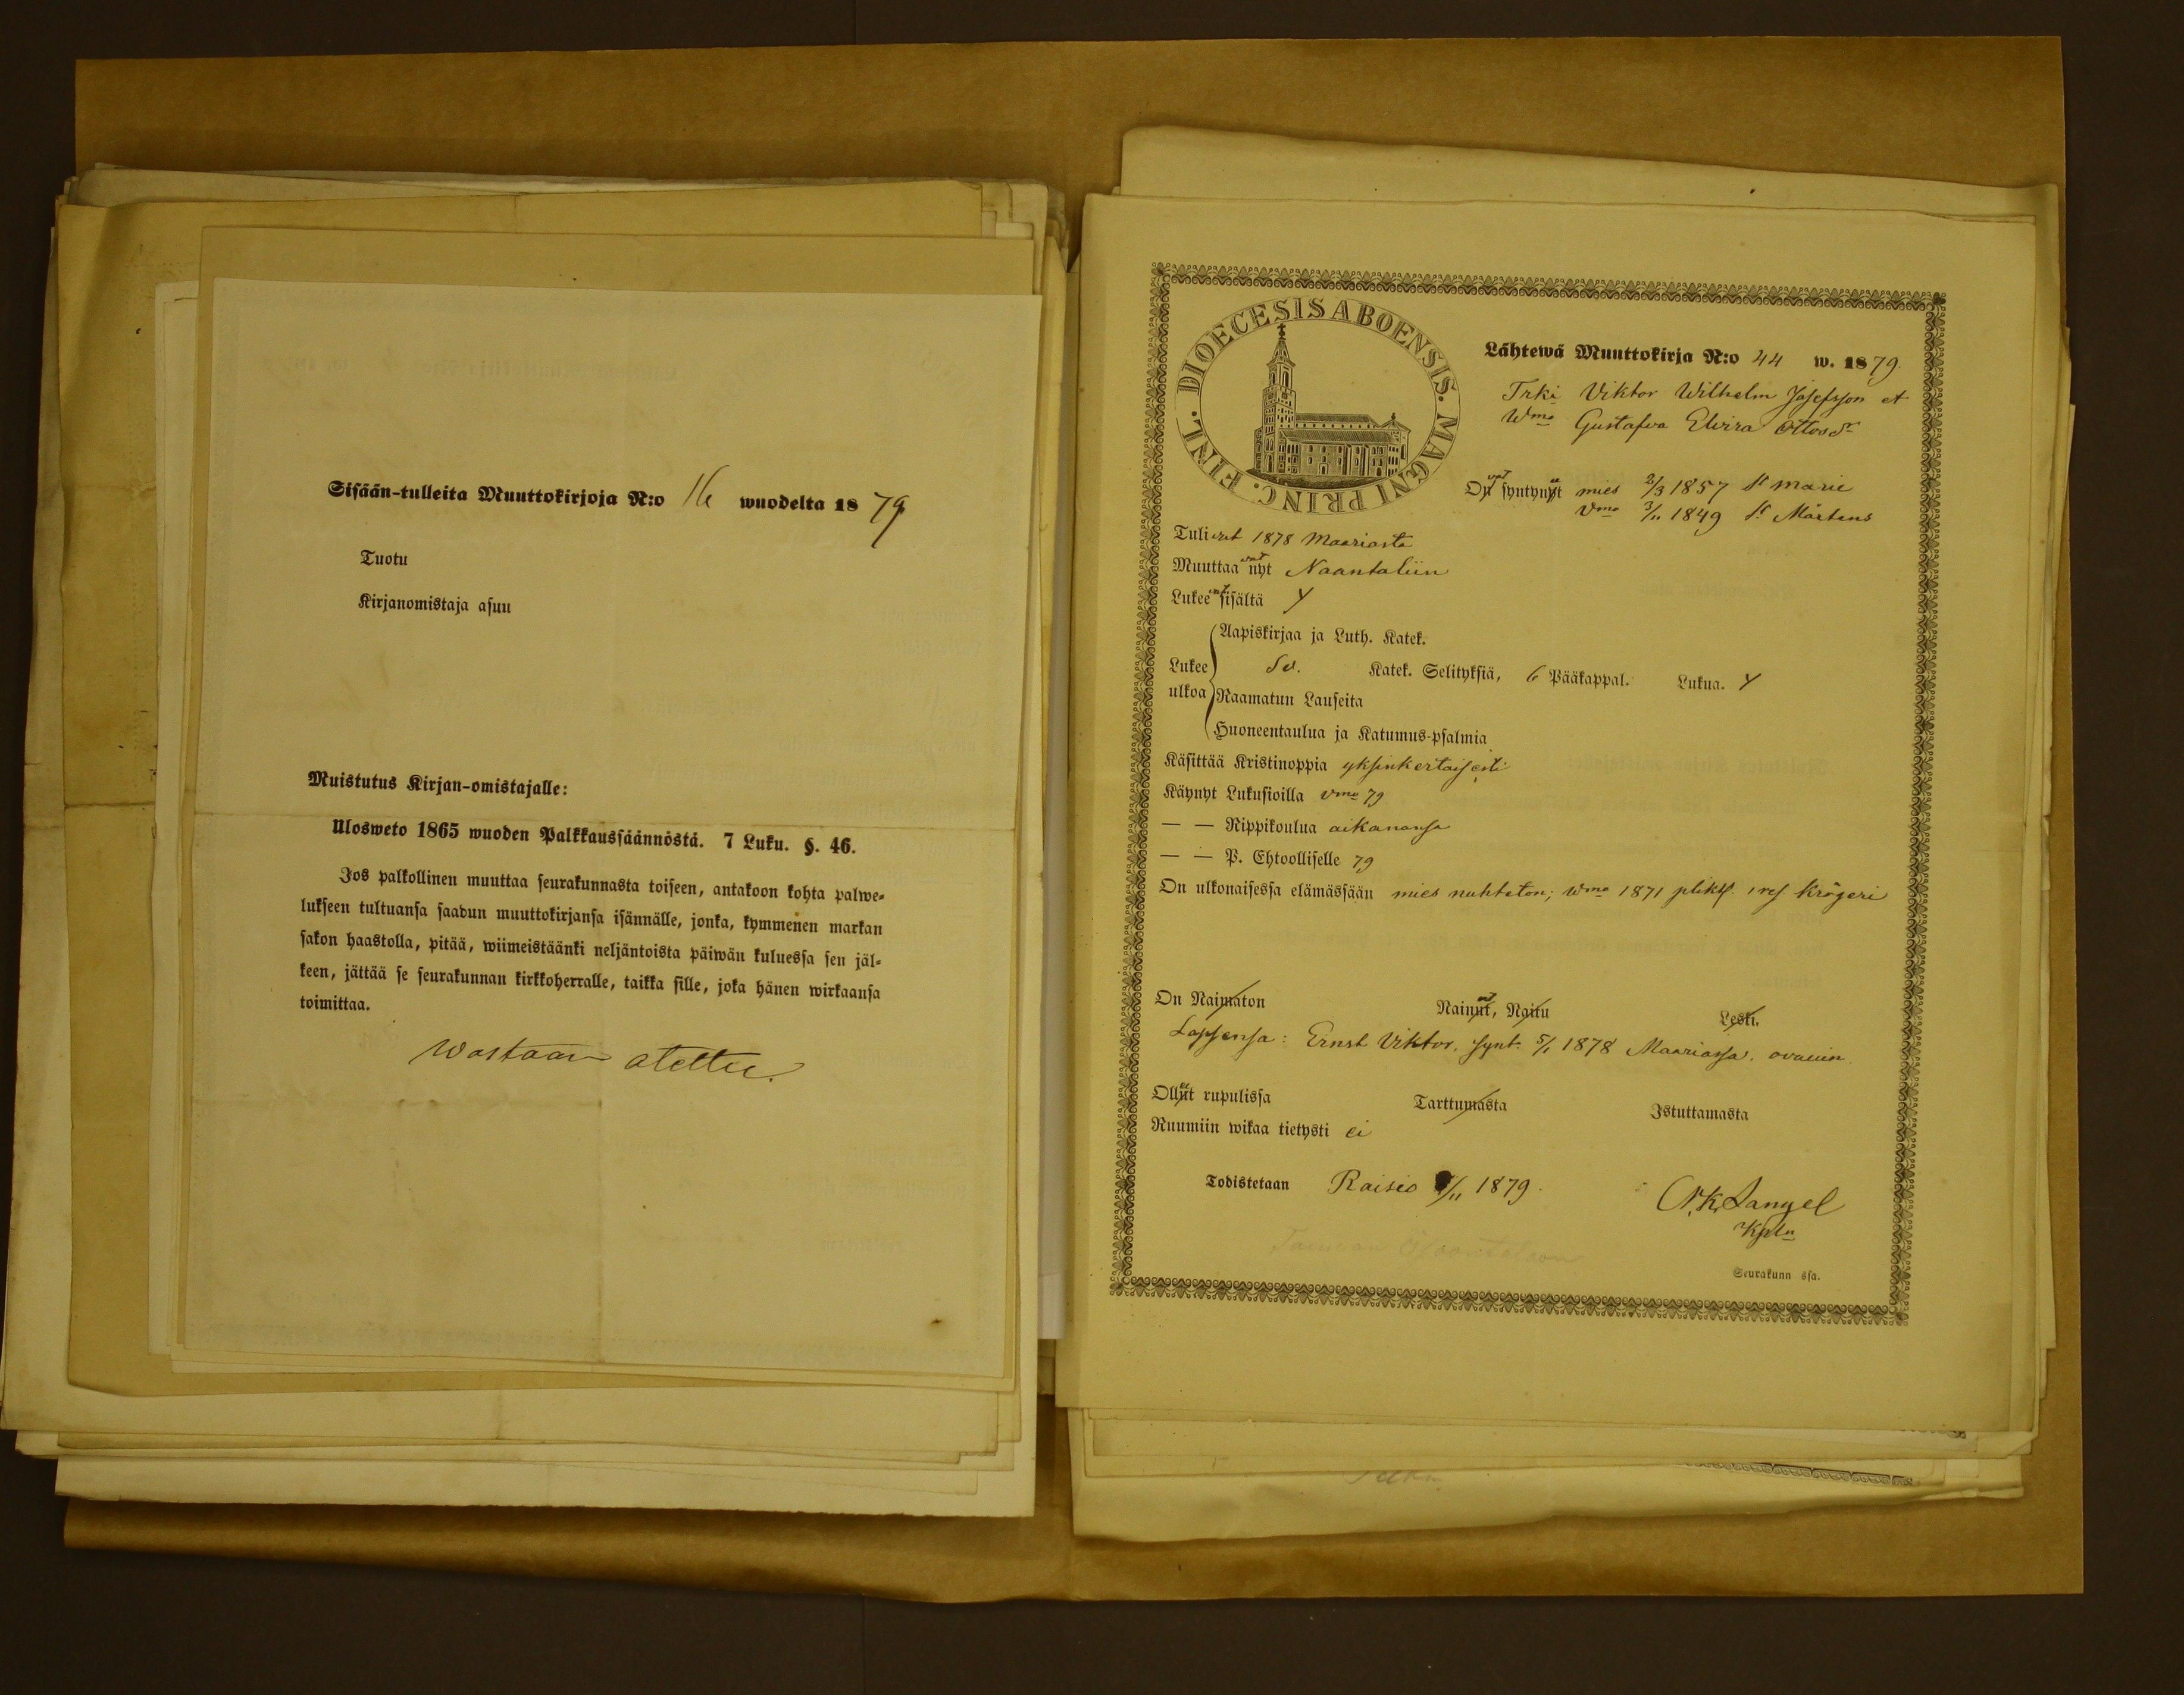 Sisään-tulleita Muuttokirjoja N:o 16 wuodelta 1879
Tuotu
Kirjanomistaja asuu
Muistutus Kirjan-omistajalle:
Ulosweto 1865 wuoden Palkkaussäännöstä. 7 Luku. §. 46.
Jos palkollinen muuttaa seurakunnasta toiseen, antakoon kohta palwe-
lukseen tultuansa saadun muuttokirjansa isännälle, jonka, kymmenen markan
sakon haastolla, pitää, wiimeistäänki neljäntoista päiwän kuluessa sen jäl-
keen, jättää se seurakunnan kirkkoherralle, taikka sille, joka hänen wirkaansa
toimittaa.
wastaan otettu.
DIOECESIS ABOENSIS. MAGNI PRINC. FINL.
Lähtewä Muuttokirja N:o 44 w. 1879.
Trki Viktor Wilhelm Josefsson et
Wmo Gustafva Elvira Ottosdr
Ovat syntynet mies 2/3 1857 St Marie
Vmo 3/11 1849 St Mårtens
Tulivat 1878 Maariasta
Muuttaavat nyt Naantaliin
Lukeevat sisältä Y
Aapiskirjaa ja Luth. Katek.
Lukee ulkoa Sv. Katek. Selityksiä, 6 Pääkappal. Lukua. Y
Raamatun Lauseita
Huoneentaulua ja Katumus-psalmia
Käsittää Kristinoppia yksinkertaisesti
Käynyt Lukusioilla vmo 79
— — Rippikoulua aikanansa
— — P. Ehtoolliselle 79
On ulkonaisessa elämässään mies nuhteton; wmo 1871
On Naimaton Nainut, Naitu Leski.
Lapsensa: Ernst Viktor. synt. 5/1 1878 Maariassa.
Ollut rupulissa Tarttumasta Istuttamasta
Ruumiin wikaa tietysti ei
Todistetaan Raisio /11 1879.
K. Langel
Kpln
Seurakunn ssa.